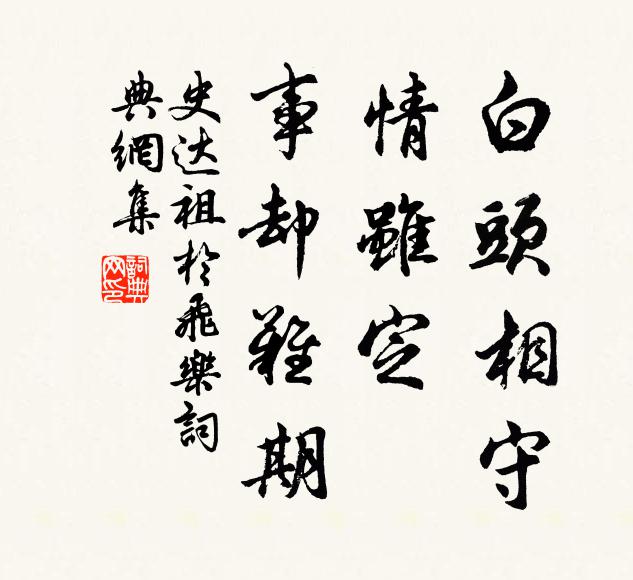 白頭相守
情雖定
事却難期
史达祖於飛樂詞
典網集
詞典网印